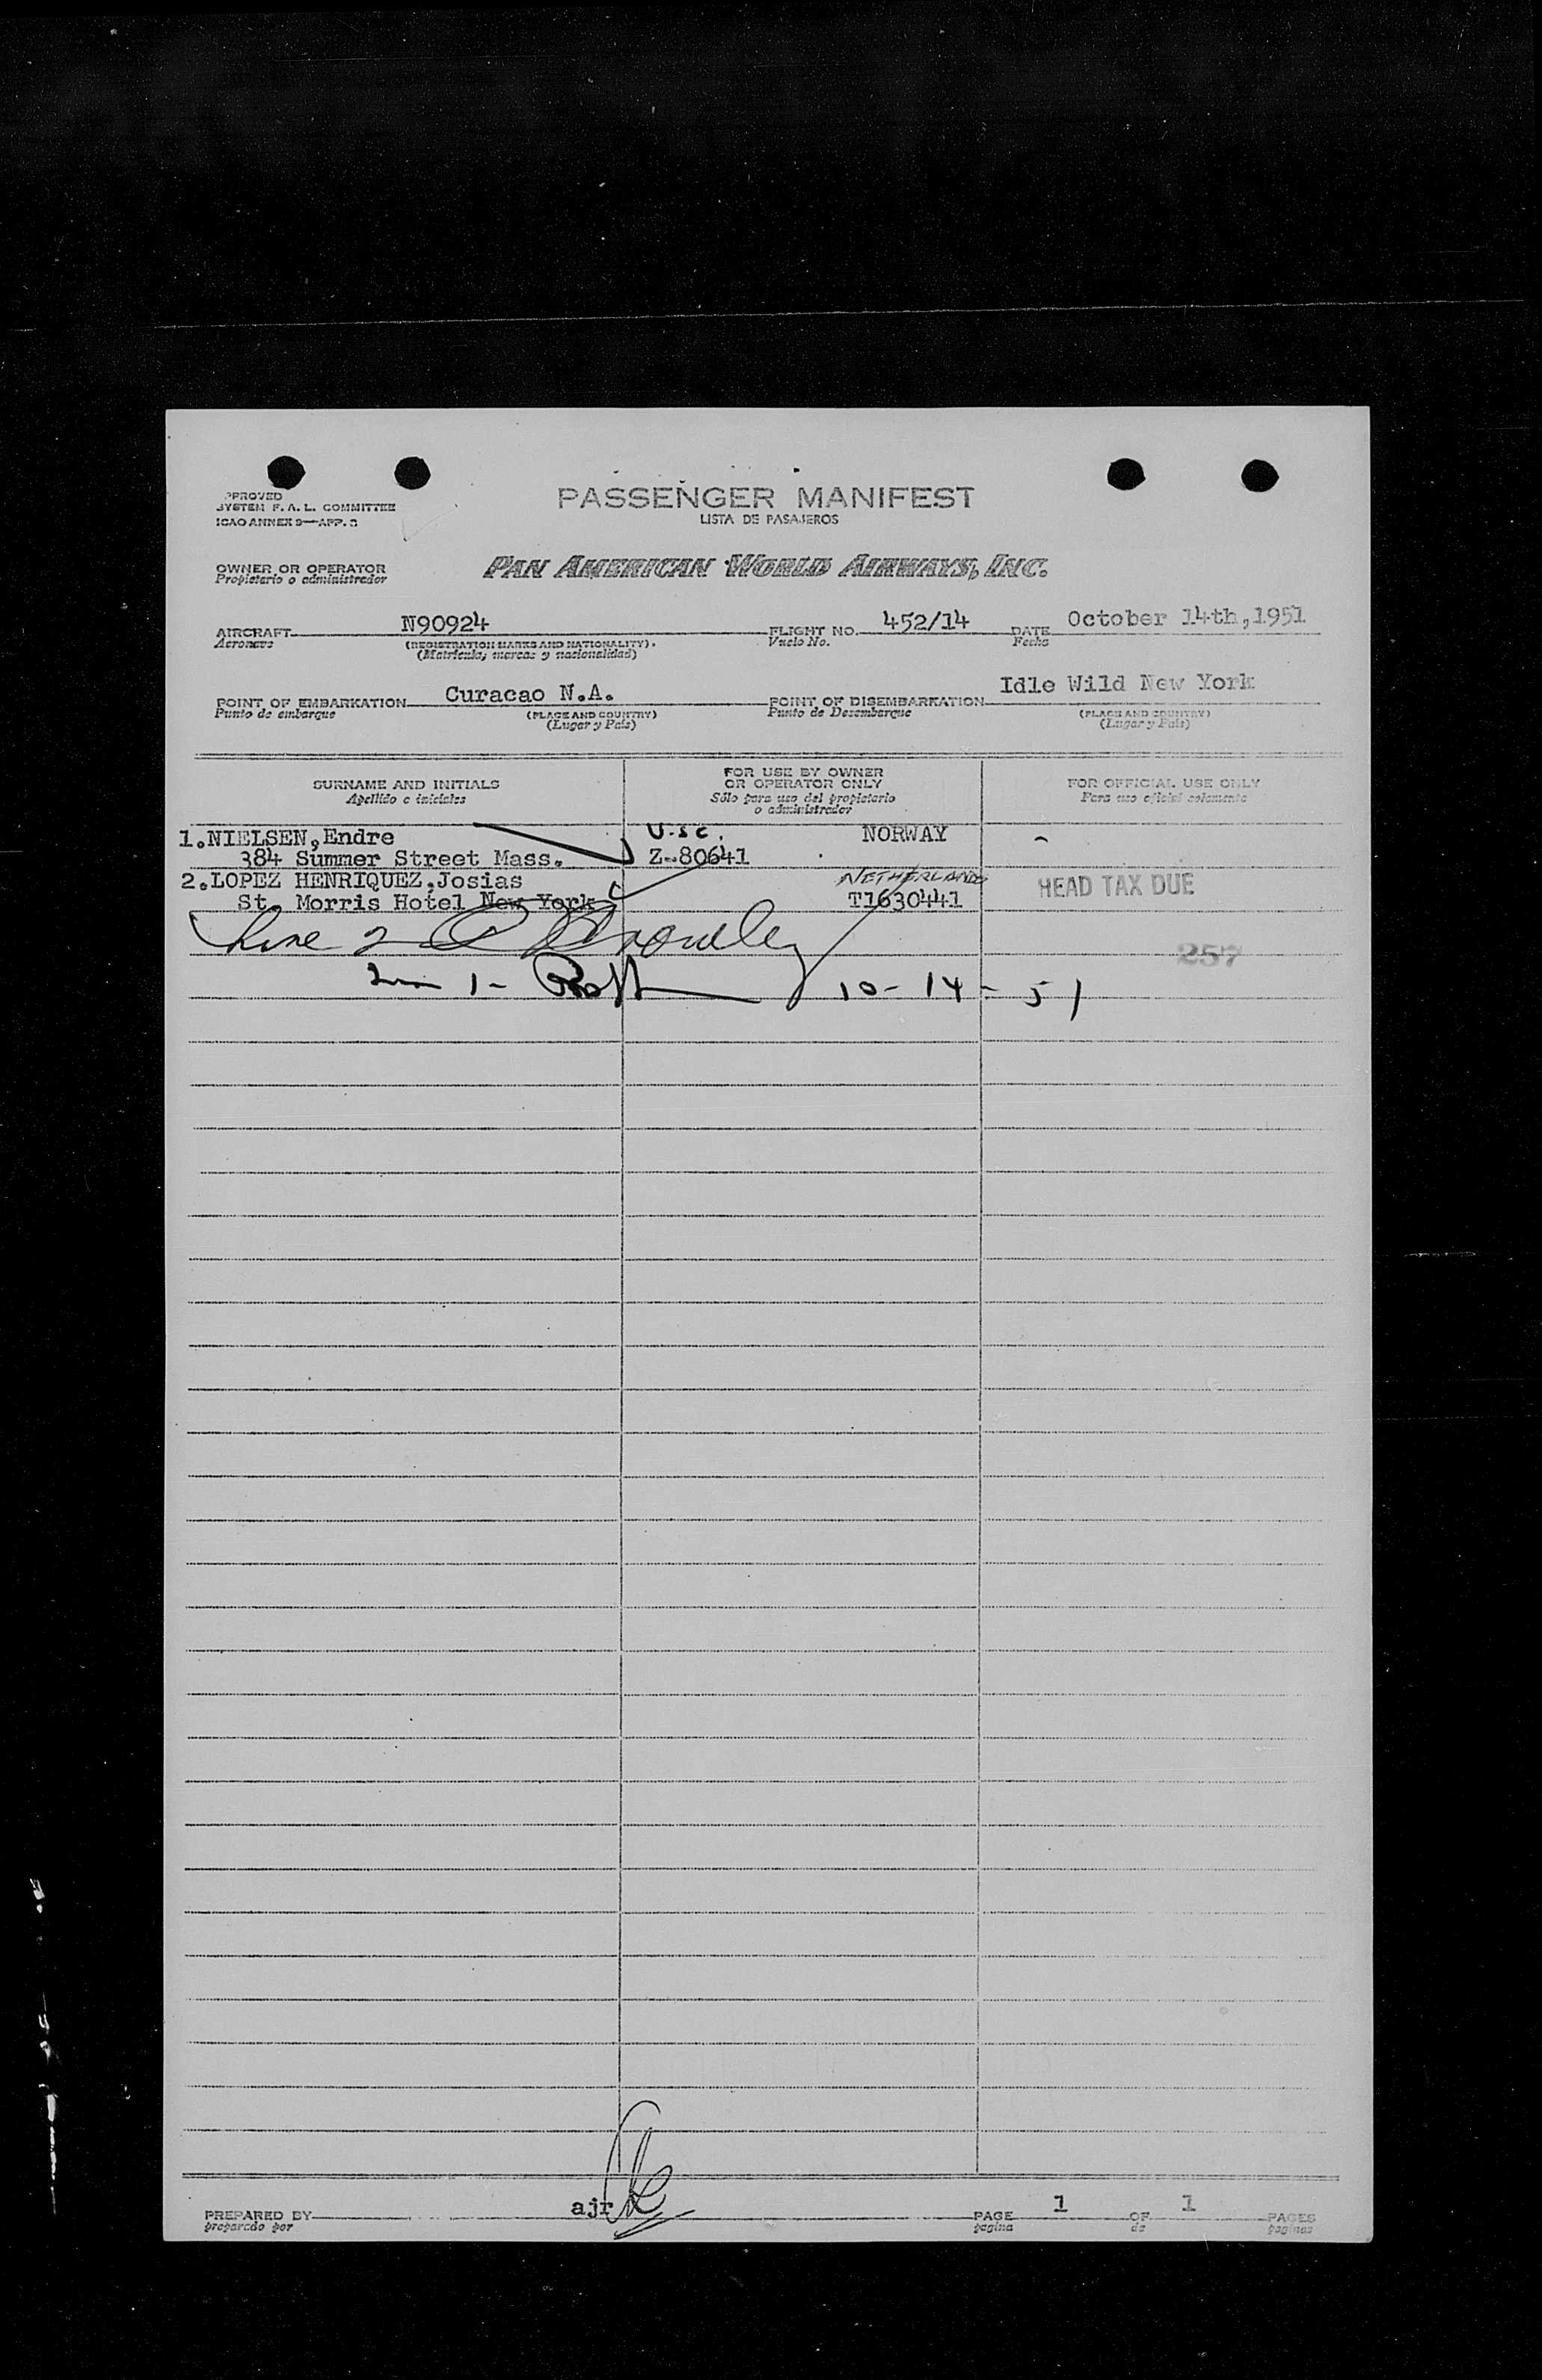 PPROVED
SYSTEM F. A. L. COMMITTEE
ICAO ANNEX 9—APP. 2
PASSENGER MANIFEST
LISTA DE PASAJEROS
OWNER OR OPERATOR
Propietario o administrador
PAN AMERICAN WORLD AIRWAYS, INC.
AIRCRAFT N90924 FLIGHT NO. 452/14 DATE October 14th,1951
Aeronave (REGISTRATION MARKS AND NATIONALITY). Vuelo No. Fecha
(Matrícula, marcas y nacionalidad)
POINT OF EMBARKATION Curacao N.A. POINT OF DISEMBARKATION Idle Wild New York
Punto de embarque (PLACE AND COUNTRY) Punto de Desembarque (PLACE AND COUNTRY)
(Lugar y País) (Lugar y País)
SURNAME AND INITIALS
Apellido e iniciales
FOR USE BY OWNER
OR OPERATOR ONLY
Sólo para uso del propietario
o administrador
FOR OFFICIAL USE ONLY
Para uso oficial solamente
1.NIELSEN,Endre U.S.C. NORWAY
384 Summer Street Mass. Z-80641
2.LOPEZ HENRIQUEZ,Josias NETHERLANDS HEAD TAX DUE
St. Morris Hotel New York T1630441
Line 2
257
1- 10-14-51
ajr
PREPARED BY PAGE 1 OF 1 PAGES
preparado por pagina de paginas